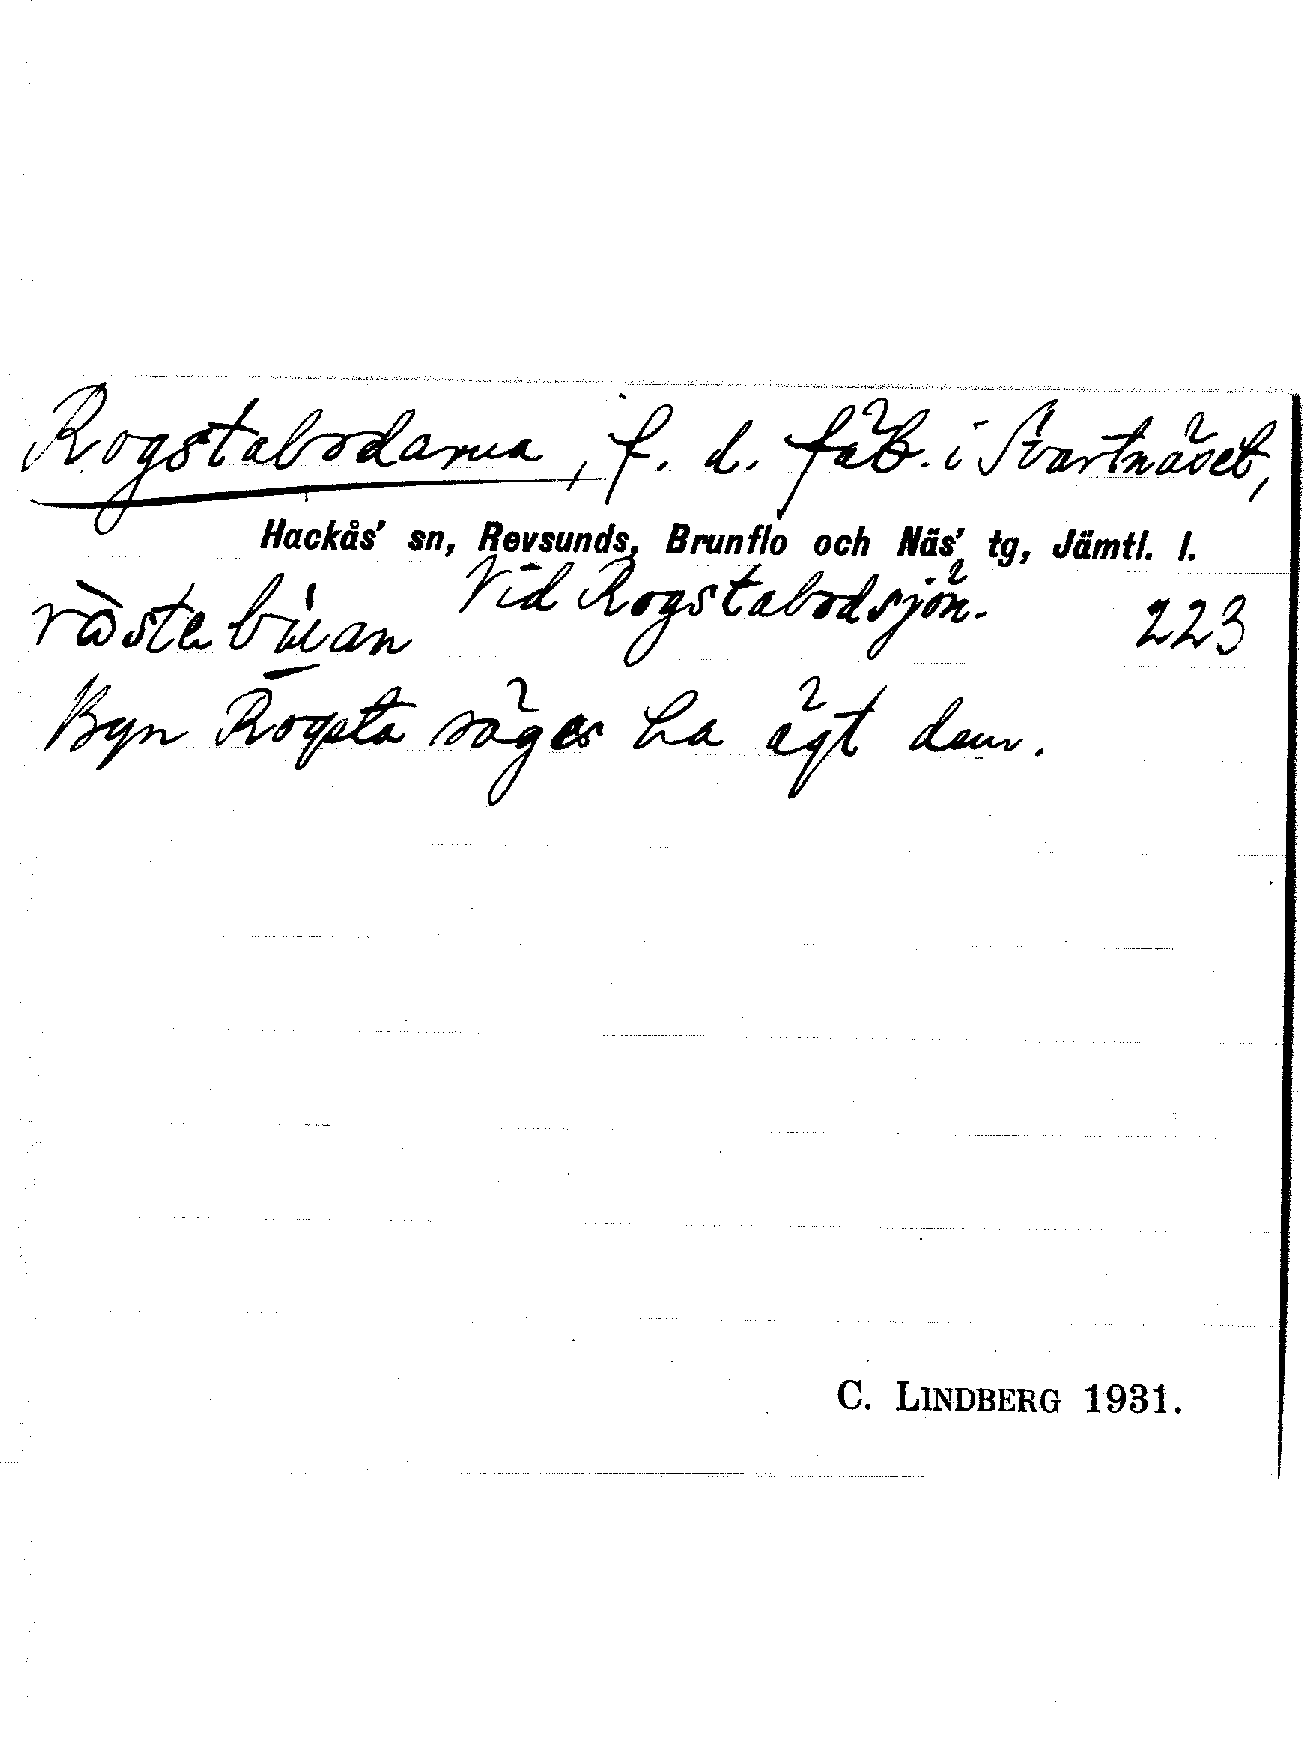 Rogstabodarna, f. d. fäb. i Svartnäset,
Hackås' sn, Revsunds, Brunflo och Näs' tg, Jämtl. l.
Vid Rogstabodsjön.
223
Byn Rogsta säges ha ägt dem.
C. LINDBERG 1931.